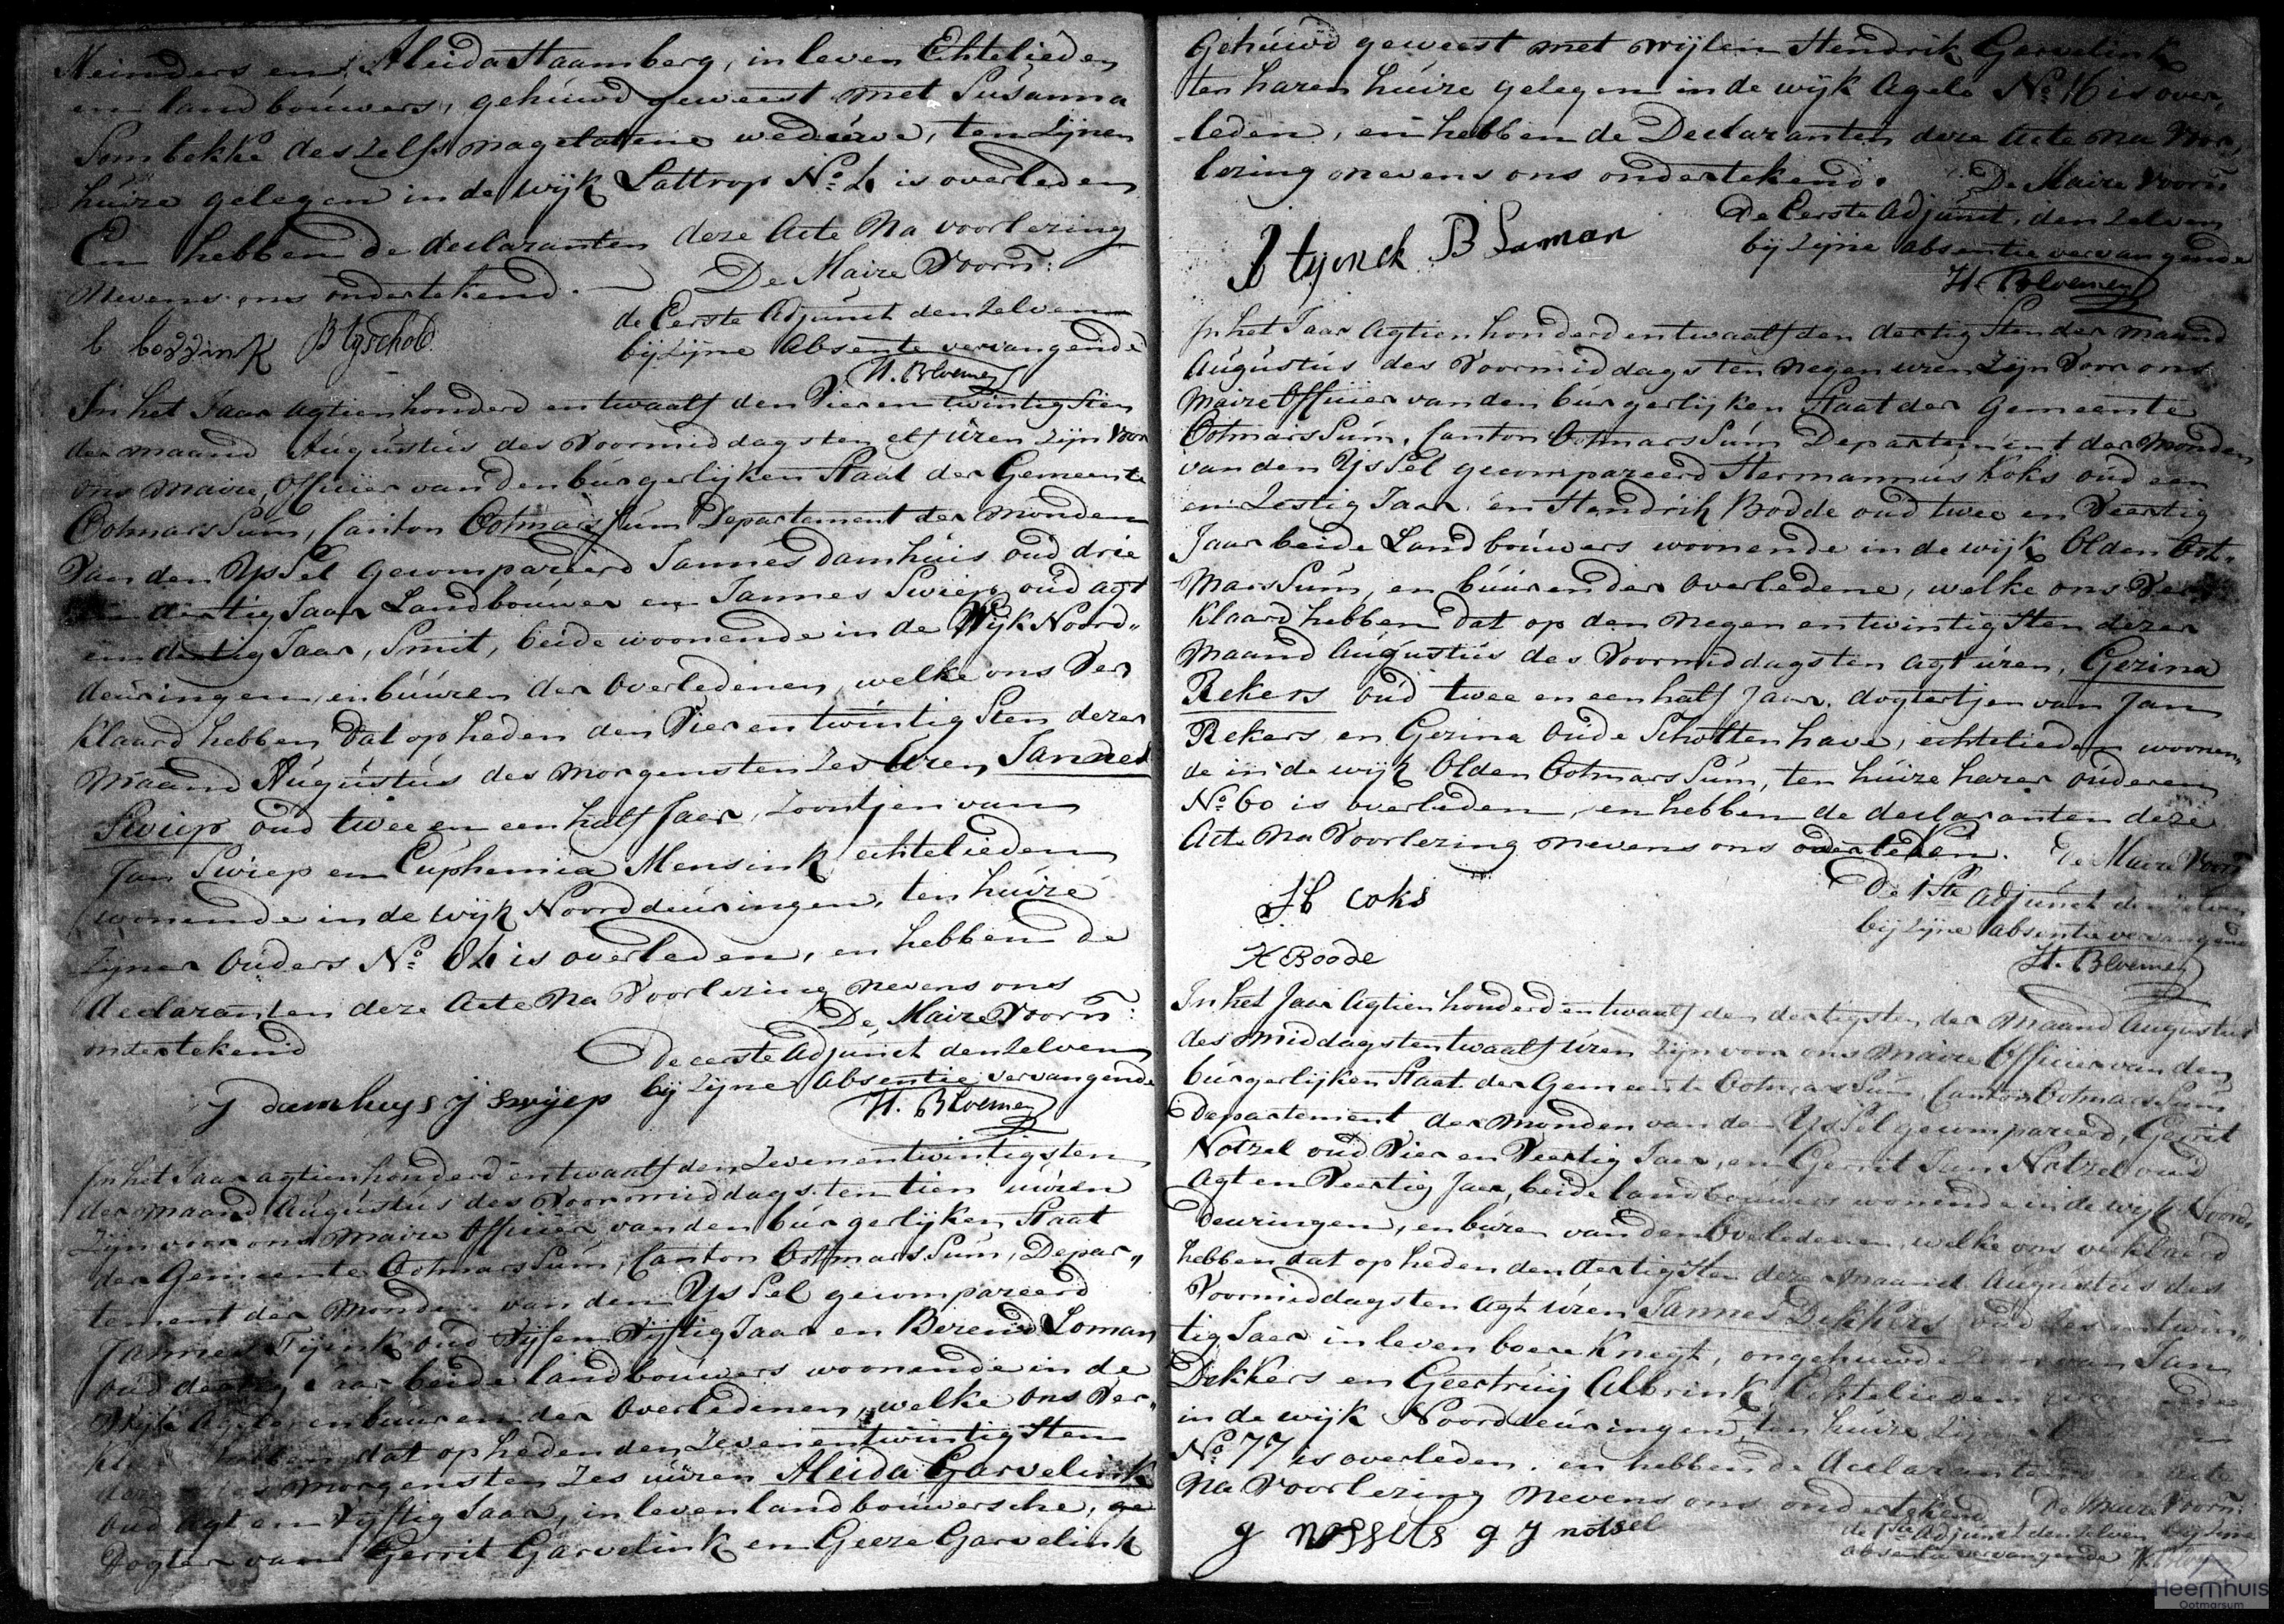 Meinders en Aleida Haamberg, in leven Echtelieden
en landbouwers, gehuwd geweest met Susanna
Sombekke deszelfs nagelatene weduwe, ten zijnen
huize gelegen in de wijk Lattrop No. 4 is overleden
En hebben de declaranten deze Acte Na voorlezing
nevens ons ondertekend. De Maire Voorn:
de Eerste Adjunct denzelven
bij zijne Absentie vervangende
H. Bloemen
In het Jaar Agtienhonderd en twaalf den Vier en twintigsten
der maand Augustus des Voormiddags ten elf uren zijn voor
ons Maire, Officier van den burgerlijken Staat der Gemeente
OotmarsSum, Canton OotmarsSum Departement der Monden
Van den YsSel gecompareerd Jannes damhuis oud drie
en dertig Jaar Landbouwer en Jannes Swiep oud agt
en dertig Jaar, Smit, beide woonende in de Wijk Noord„
deuringen, en buuren der Overledenen, welke ons Ver
klaard hebben Dat op heden den Vier en twintigSten dezer
Maand Augustus des morgens ten Zes Uren, Jannes
Swiep oud twee en een half Jaer, Zoontjen van
Jan Swiep en Euphemia Mensink echtelieden
wonende in de Wijk Noorddeuringen, ten huize
zijner Ouders No. 84 is overleden, en hebben de
declaranten deze Acte Na Voorlezing nevens ons
ondertekend De Maire Voorn:
De eerste Adjunct denzelven
bij zijne Absentie vervangende
J damhuys J swijep H. Bloemen
In het Jaar agtienhonderd en twaalf den Zeven en twintigsten
der maand Augustus des Voormiddags ten tien uuren
zijn voor ons Maire Officier van den burgerlijken Staat
der Gemeente OotmarsSum, Canton OotmarsSum, Depar„
tement der Monden van den YsSel gecompareerd
Jannes Tijink oud Vijf en Vijftig Jaar en Berend Loman
oud dertig Jaar beide landbouwers woonende in de
Wijk Agele en buuren der Overledenen, welke ons Ver„
hebben dat op heden den Zeven en twintigSten
morgens ten Zes uuren Aleida Garvelink
oud Agt en Vijftig Jaar, in leven landbouwersche, ge
Dogter van Gerrit Garvelink en Geeze Garvelink
Gehuwd geweest met wijlen Hendrik Garvelink
ten haren huize gelegen in de wijk Agele No. 16 is over„
leden, en hebben de Declaranten deze Acte na Voor„
lezing nevens ons ondertekend. De Maire Voorn
De Eerste Adjunct, den zelven
bij zijne absentie vervangende
J tijenck B Loman
H. Bloemen
In het Jaar Agtien honderd en twaalf den dertigSten der Maand
Augustus des Voormiddags ten negen uren Zijn Voor ons
Maire Officier van den burgerlijken Staat der Gemeente
OotmarsSum, Canton OotmarsSum Departement der Monden
van den YsSel gecompareerd Hermannus Koks oud een
en Zestig Jaar en Hendrik Bodde oud twee en Veertig
Jaar beide Landbouwers woonende in de wijk Olden Oot„
MarsSum, en buuren der Overledene, welke ons Ver
klaard hebben dat op den negen en twintigSten dezer
Maand Augustus des Voormiddags ten Agt uren, Gezina
Rekers oud twee en een half Jaar, dogtertjen van Jan
Rekers en Gezina Oude Scholtenhave, echtelieden woonen„
de in de wijk Olden OotmarsSum, ten huize harer ouderen
No. 60 is overleden, en hebben de declaranten deze
Acte Na Voorlezing nevens ons De Maire Voorn
De 1ste Adjunct
bij zijne absentie vervangende
H coks
H Boode
H. Bloemen
In het Jaar Agtien honderd en twaalf den dertigsten der Maand Augustus
des Middags ten twaalf Uren Zijn voor ons Maire Officier van den
burgerlijken Staat der Gemeente OotmarsSum, Canton OotmarsSum
Departement der Monden van den YsSel gecompareerd, Gerrit
Notzel oud Vier en Veertig Jaer, en Gerrit Jan Notzel oud
Agt en Veertig Jaer, beide landbouwers wonende in de wijk Noord„
deuringen, en buren van den Overledenen welke ons verklaard
hebben dat op heden den dertigSten dezer Maand Augustus des
Voormiddags ten Agt Uren Jannes Dekkers oud Zes en twin„
tig Jaer in leven boere Knegt, ongehuwde Zoon van Jan
Dekkers en Geertruij Albrink, Echtelieden
in de wijk Noorddeuringen, ten huize
No. 77 is overleden. en hebben de declaranten
Na Voorlezing nevens ons ondertekend De Maire Voorn:
de 1ste Adjunct denzelven bij zijne
absentie vervangende
g nossels g J notsel
Heemhuis
Ootmarsum